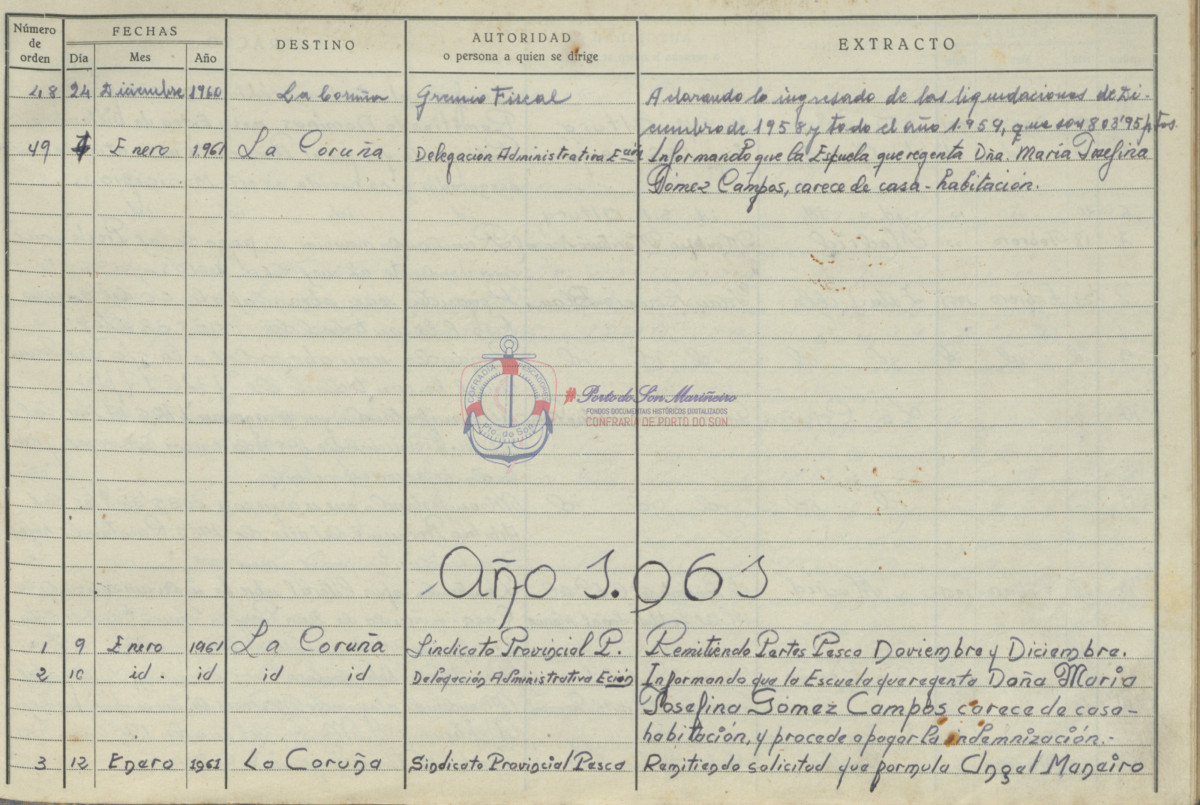 Número de orden FECHAS DESTINO AUTORIDAD o persona a quien se dirige EXTRACTO
Día Mes Año
48 24 Diciembre 1960 La Coruña Gremio Fiscal Aclarando lo ingresado de las liquidaciones de Di-
ciembre de 1958 y todo el año 1.959, que son 803'95 ptas.
49 Enero 1.961 La Coruña Delegación Administrativa Eción Informando que la Espuela que regenta Dña. María Josefina
Gómez Campos, carece de casa-habitación.
COFRADIA PESCADORES
Pto. do Son
#Porto do Son Mariñeiro
FONDOS DOCUMENTAIS HISTÓRICOS DIXITALIZADOS
CONFRARÍA DE PORTO DO SON
Año 1.961
1 9 Enero 1961 La Coruña Sindicato Provincial P. Remitiendo Partes Pesca Noviembre y Diciembre.
2 10 id. id id id Delegación Administrativa Eción Informando que la Escuela que regenta Doña María
Josefina Gómez Campos carece de casa-
habitación, y procede a pagar la indemnización.-
3 12 Enero 1961 La Coruña Sindicato Provincial Pesca Remitiendo solicitud que formula Angel Maneiro